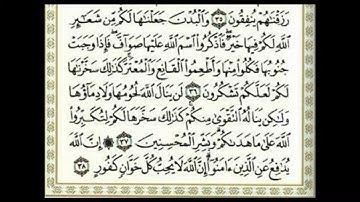 رَزَقْنَٰهُمْ يُنفِقُونَ ٣٥ وَٱلْبُدْنَ جَعَلْنَٰهَا لَكُم مِّن شَعَٰٓئِرِ
ٱللَّهِ لَكُمْ فِيهَا خَيْرٌ ۖ فَٱذْكُرُوا۟ ٱسْمَ ٱللَّهِ عَلَيْهَا صَوَآفَّ ۖ فَإِذَا وَجَبَتْ
جُنُوبُهَا فَكُلُوا۟ مِنْهَا وَأَطْعِمُوا۟ ٱلْقَانِعَ وَٱلْمُعْتَرَّ ۚ كَذَٰلِكَ سَخَّرْنَٰهَا
لَكُمْ لَعَلَّكُمْ تَشْكُرُونَ ٣٦ لَن يَنَالَ ٱللَّهَ لُحُومُهَا وَلَا دِمَآؤُهَا
وَلَٰكِن يَنَالُهُ ٱلتَّقْوَىٰ مِنكُمْ ۚ كَذَٰلِكَ سَخَّرَهَا لَكُمْ لِتُكَبِّرُوا۟
ٱللَّهَ عَلَىٰ مَا هَدَىٰكُمْ ۗ وَبَشِّرِ ٱلْمُحْسِنِينَ ٣٧ ۞ إِنَّ ٱللَّهَ
يُدَٰفِعُ عَنِ ٱلَّذِينَ ءَامَنُوٓا۟ ۗ إِنَّ ٱللَّهَ لَا يُحِبُّ كُلَّ خَوَّانٍ كَفُورٍ ٣٨